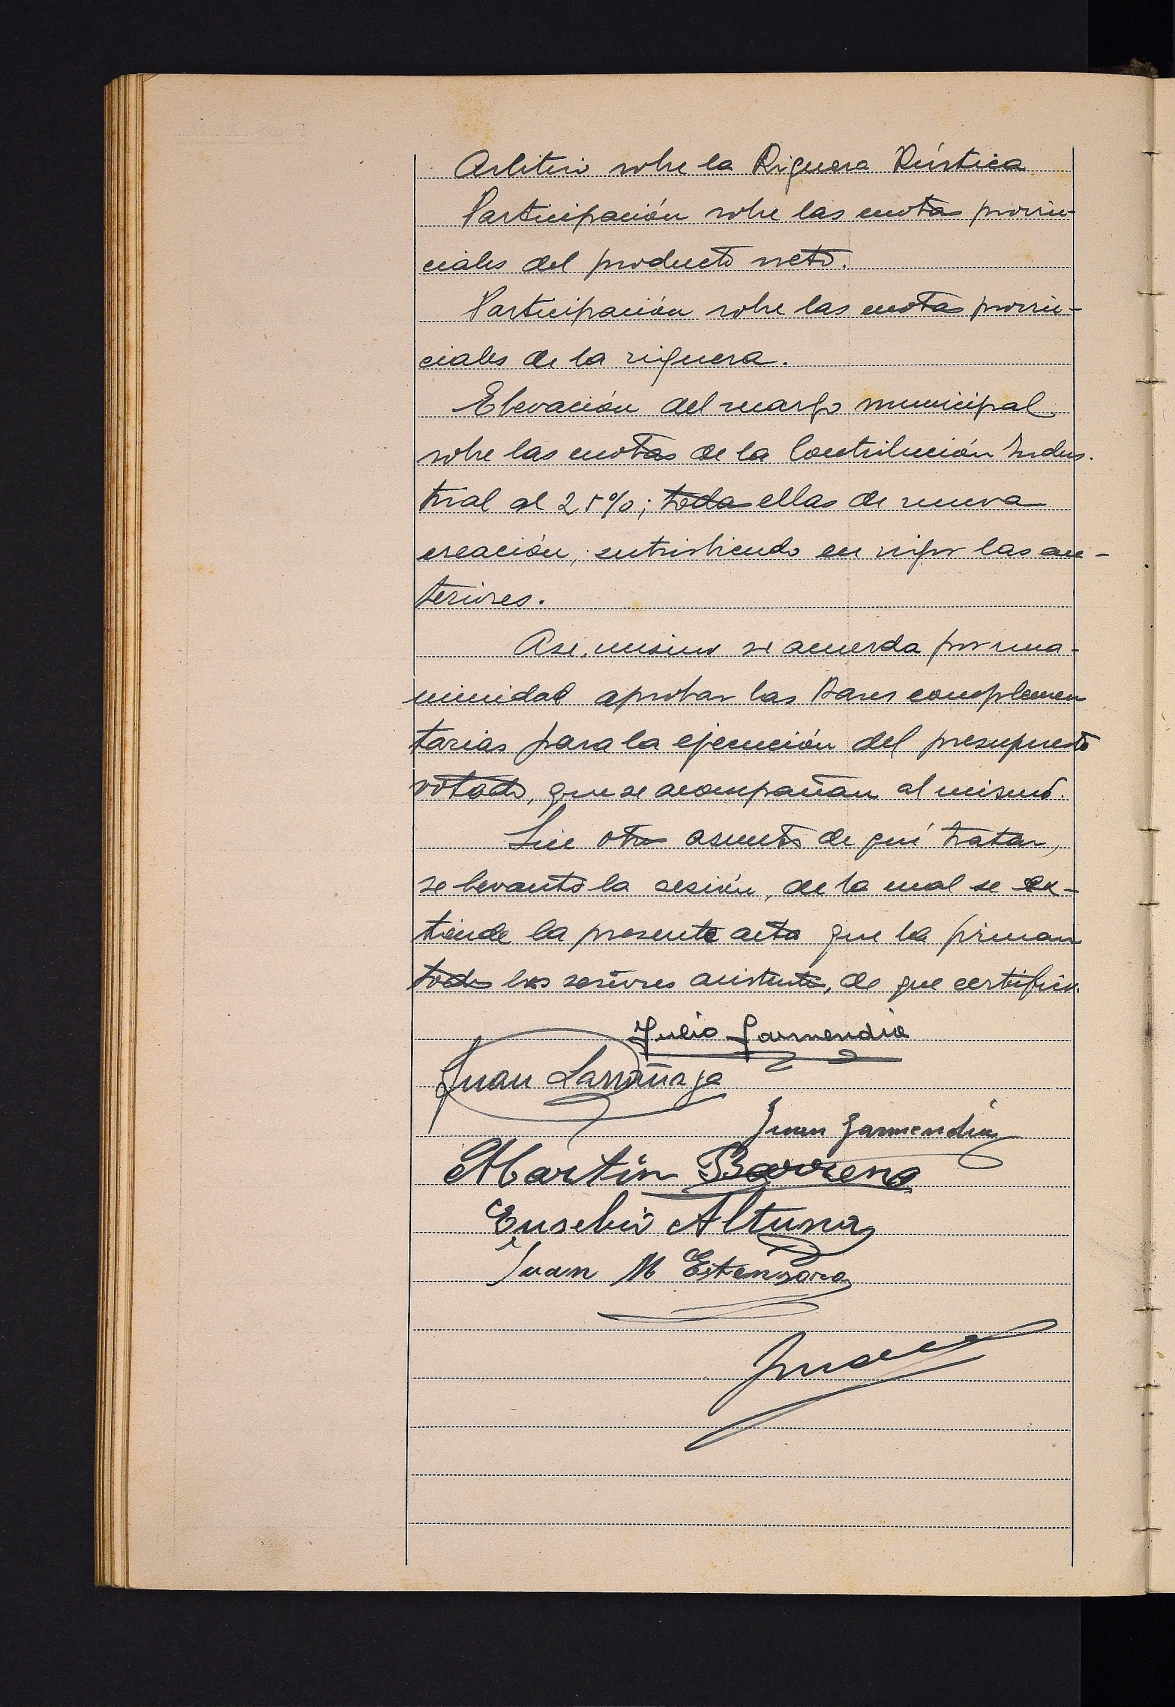 Arbitrio sobre la Riqueza Rústica
Participación sobre las cuotas provin-
ciales del producto neto.
Participación sobre las cuotas provin-
ciales de la riqueza.
Elevación del recargo municipal
sobre las cuotas de la Contribución Indus-
trial al 25%; todas ellas de nueva
creación, subsistiendo en vigor las an-
teriores.
Asi mismo se acuerda por una-
nimidad aprobar las Bases complemen
tarias para la ejecución del presupuesto
votado, que se acompañan al mismo.
Sin otro asunto de qué tratar,
se levantó la sesión, de la cual se ex-
tiende la presente acta que la firman
todos los señores asistentes, de que certifico.
Julio Garmendia
Juan Larrañaga
Juan Garmendia
Martin Barrena
Eusebio Altuna
Juan M Estensoro